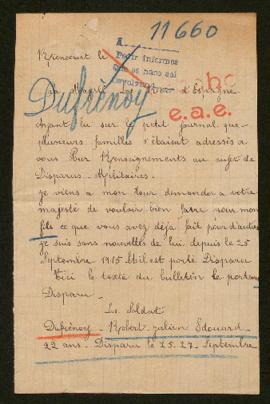 11660
A
Pedir informes
que se haga así
Riencourt le
Dufrénoy
e.a.e.
sa Majesté Le d'Espagne
ayant lu sur le petit journal que
plusieurs familles s'étaient adressés a
vous Pour Renseignements au sujet de
Disparus Militaires.
je viens a mon tour demander a votre
majesté de vouloir bien faire pour mon
fils ce que vous avez déjà fait pour d'autres
je suis sans nouvelles de lui depuis le 25
Septembre 1915 et il est porté Disparu
Ici le texte du bulletin le portant
Disparu
Le Soldat
Dufrénoy Robert Julien Edouard
22 ans Disparu le 25.27 Septembre